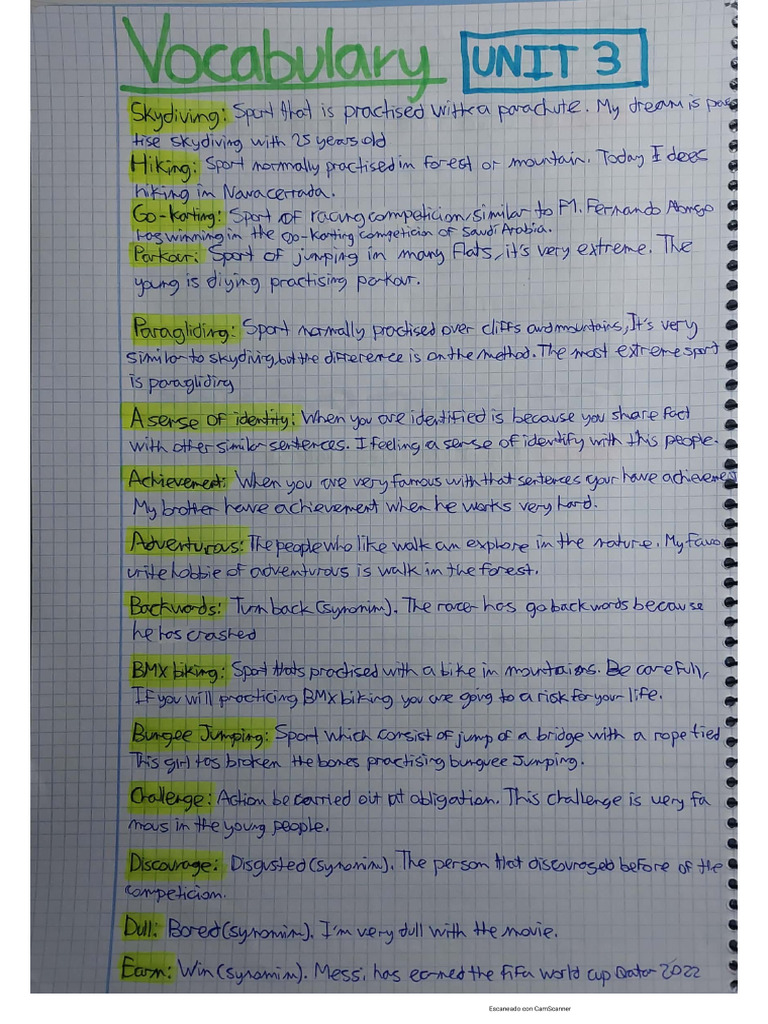 Vocabulary UNIT 3
Skydiving: Sport that is practised with a parachute. My dream is
tise skydiving with 25 years old
Hiking: Sport normally practised in forest or mountain. Today I does
hiking in Navacerrada.
Go-karting: Sport of racing competicion, similar to F1. Fernando Alonso
has winning in the Go-karting competicion of Saudi Arabia.
Parkour: Sport of jumping in many flats, it's very extreme. The
young is diying practising parkour.
Paragliding: Sport normally practised over cliffs and mountains, It's very
similar to skydiving but the difference is on the method. The most extreme sport
is paragliding
A sense of identity: When you are identified is because you share fact
with other similar sentences. I feeling a sense of identify with this people.
Achievement: When you are very famous with that sentences your have achievement
My brother have achievement when he works very hard.
Adventurous: The people who like walk an explore in the nature. My favo
urite hobbie of adventurous is walk in the forest.
Backwords: Turn back (synonim). The racer has go backwords because
he has crashed
BMX biking: Sport thats practised with a bike in mountaions. Be carefull,
If you will practicing BMX biking you are going to a risk for your life.
Bungee Jumping: Sport which consist of jump of a bridge with a rope tied
This girl has broken the bones practising bunguee Jumping.
Challenge: Action be carried out at obligation. This challenge is very fa
mous in the young people.
Discourage: Disgusted (synonim). The person that discouraged before of the
competicion.
Dull: Bored (synonim). I'm very dull with the movie.
Earn: Win (synonim). Messi has earned the fifa world cup Qatar 2022
Escaneado con CamScanner